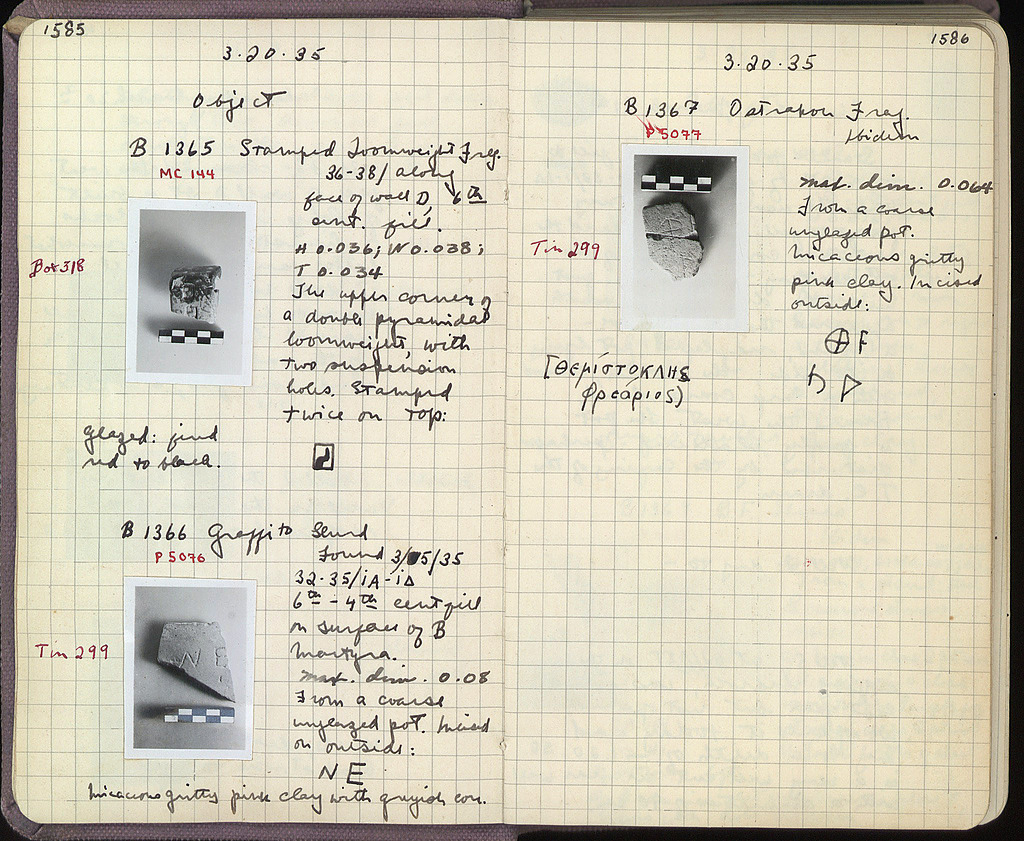 1585
3·20·35
Object
B 1365 Stamped Loomweight Frag.
MC 144
36-38/ along
face of wall D, 6th
cent. fill.
H 0.036; W 0.038;
T 0.034
Box 318
The upper corner of
a double pyramidal
loomweight, with
two suspension
holes. Stamped
twice on top:
glazed: fired
red to black.
B 1366 Graffito Sherd
P 5076
Found 3/5/35
32-35/ΙΑ-ΙΔ
6th - 4th cent fill
on surface of B
Martyra.
Tin 299
max. dim. 0.08
From a coarse
unglazed pot. Incised
on outside:
NE
Micaceous gritty pink clay with greyish core.
1586
3·20·35
B 1367 Ostrakon Frag.
P 5077
Ibidem
max. dim. 0.064
From a coarse
unglazed pot.
Tin 299
Micaceous gritty
pink clay. Incised
outside:
⊕F
[Θεμίστοκλης
φρεάριος)